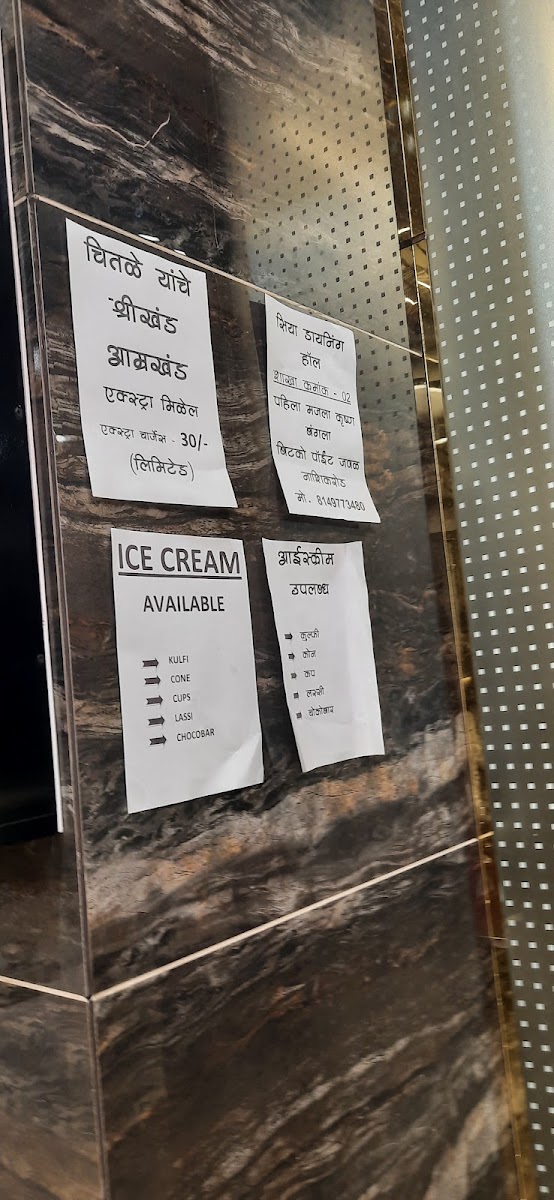 चितळे यांचे
श्रीखंड
आम्रखंड
एक्स्ट्रा मिळेल
एक्स्ट्रा चार्जेस - 30/-
(लिमिटेड)
सिया डायनिंग
हॉल
शाखा क्रमांक - 02
पहिला मजला कृष्ण
बंगला
बिटको पॉईंट जवळ
नाशिकरोड
मो - 8149773480
ICE CREAM
AVAILABLE
KULFI
CONE
CUPS
LASSI
CHOCOBAR
आईस्क्रीम
उपलब्ध
कुल्फी
कोन
कप
लस्सी
चोकोबार